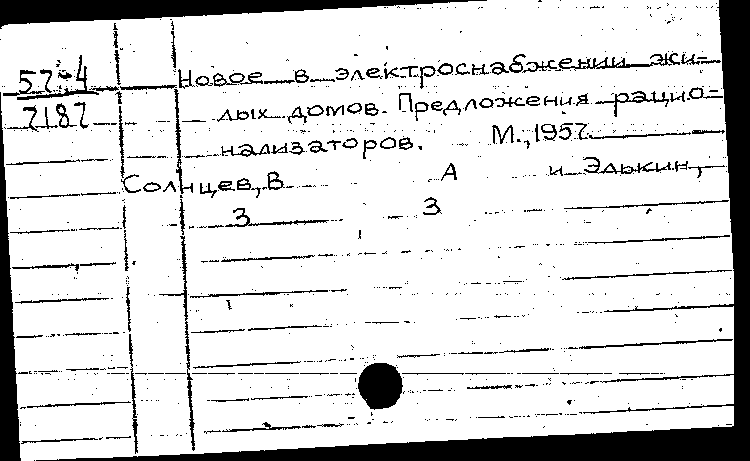 57-4 Новое в электроснабжении жи-
7187 лых домов. Предложения рацио-
нализаторов. М., 1957
Солнцев, В А и Элькин,
З З